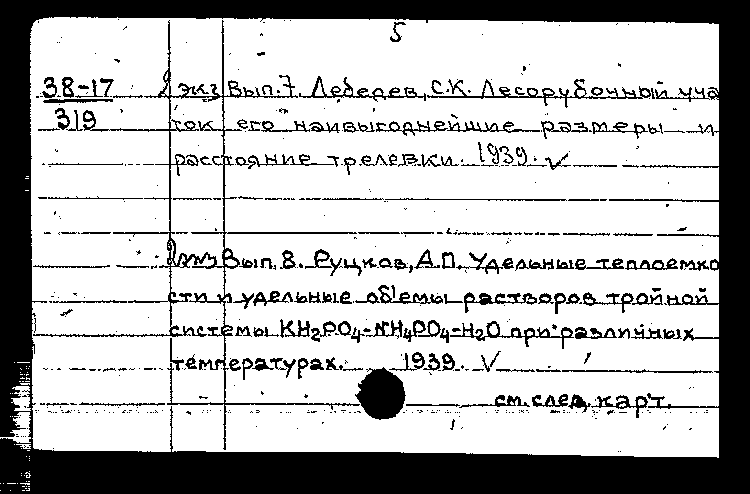 5
38-17 2 экз Вып.7. Лебедев, С.К. Лесорубочный уча
319 ток его наивыгоднейшие размеры и
расстояние трелевки. 1939. ✓
2 экз Вып. 8. Руцков, А.П. Удельные теплоемко
сти и удельные об'емы растворов тройной
системы KH₂PO₄-NH₄PO₄-H₂O при различных
температурах. 1939. ✓
см. след. карт.